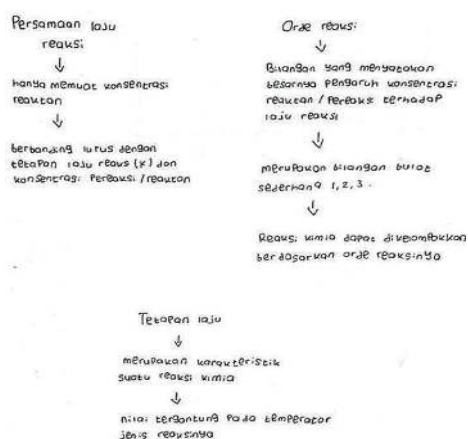 Persamaan laju
reaksi
↓
hanya memuat konsentrasi
reaktan
↓
berbanding lurus dengan
tetapan laju reaksi (k) dan
konsentrasi Pereaksi / reaktan
Orde reaksi
↓
Bilangan yang menyatakan
besarnya pengaruh konsentrasi
reaktan / Pereaksi terhadap
laju reaksi
↓
merupakan bilangan bulat
sederhana 1, 2, 3.
↓
Reaksi kimia dapat dikelompokkan
berdasarkan orde reaksinya
Tetapan laju
↓
merupakan karakteristik
suatu reaksi kimia
↓
nilai tergantung Pada temperator
jenis reaksinya